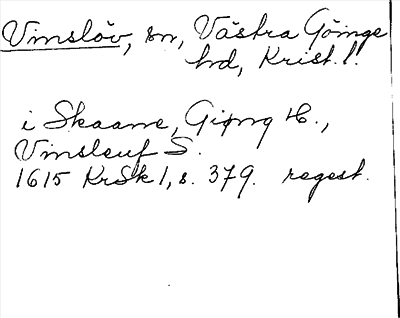 Vinslöv, sn, Västra Göinge
hd, Krist. l.
i Skaane, Giøng H.,
Vinsleuf S.
1615 KrSk 1, s. 379. regest.